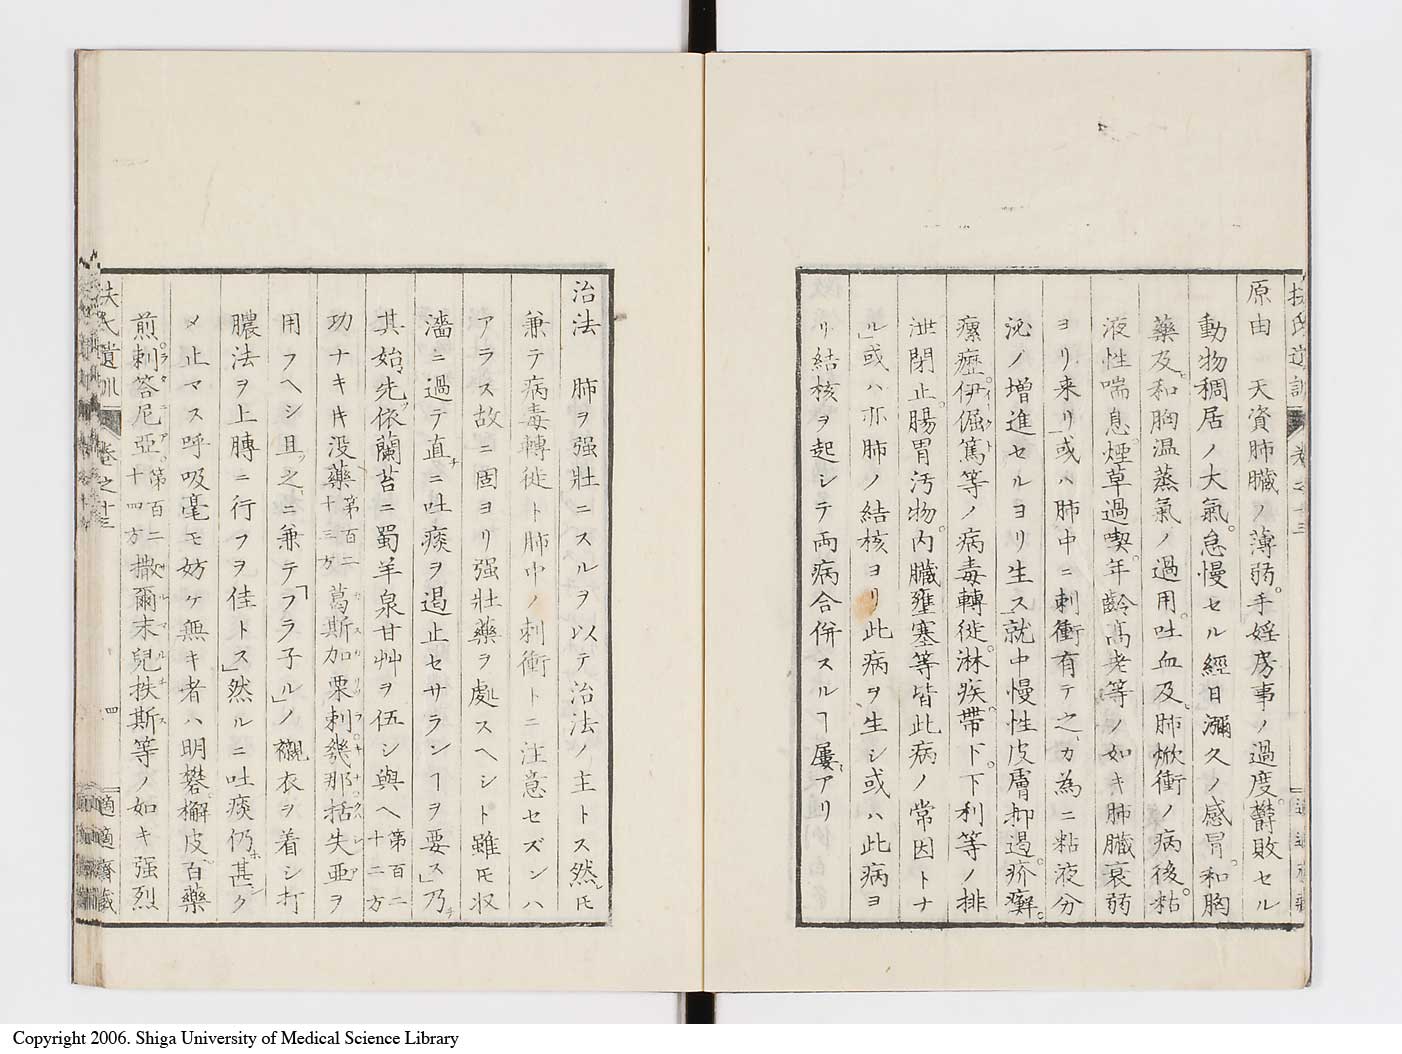 原由 天資肺臓ノ薄弱。手婬房事ノ過度。欝敗セル
動物稠居ノ大氣。怠慢セル經日瀰久ノ感冒。和胸
藥及和胸温蒸氣ノ過用。吐血及肺焮衝ノ病後。粘
液性喘息。煙草過喫。年齡高老等ノ如キ肺臓衰弱
ヨリ来リ」或ハ肺中ニ刺衝有テ之カ為ニ粘液分
泌ノ増進セルヨリ生ス」就中慢性皮膚抑遏。疥癬。
瘰癧。伊倔篤等ノ病毒轉徙。淋疾。帶下。下利等ノ排
泄閉止。腸胃汚物。内臓壅塞等皆此病ノ常因トナ
ル」或ハ亦肺ノ結核ヨリ此病ヲ生シ或ハ此病ヨ
リ結核ヲ起シテ両病合併スルヿ屢アリ
治法 肺ヲ强壯ニスルヲ以テ治法ノ主トス然レ𪜈
兼テ病毒轉徙ト肺中ノ刺衝トニ注意セズンハ
アラス故ニ固ヨリ强壯藥ヲ處スヘシト雖𪜈収
濇ニ過テ直チニ吐痰ヲ遏止セサランヿヲ要ス」乃チ
其始メ先ツ依蘭苔ニ蜀羊泉甘艸ヲ伍シ與ヘ第百二十二方
功ナキ𪜈没藥第百二十三方葛斯加栗刺幾那括失亜ヲ
用フヘシ且ツ之ニ兼テ「フラ子ル」ノ襯衣ヲ着シ打
膿法ヲ上膊ニ行フヲ佳トス」然ルニ吐痰仍ホ甚シク
メ止マス呼吸毫モ妨ケ無キ者ハ明礬。檞皮。百藥
煎。刺答尼亞。第百二十四方撒爾末兒扶斯等ノ如キ强烈
扶氏遺訓 卷之十三 四 適適齋藏